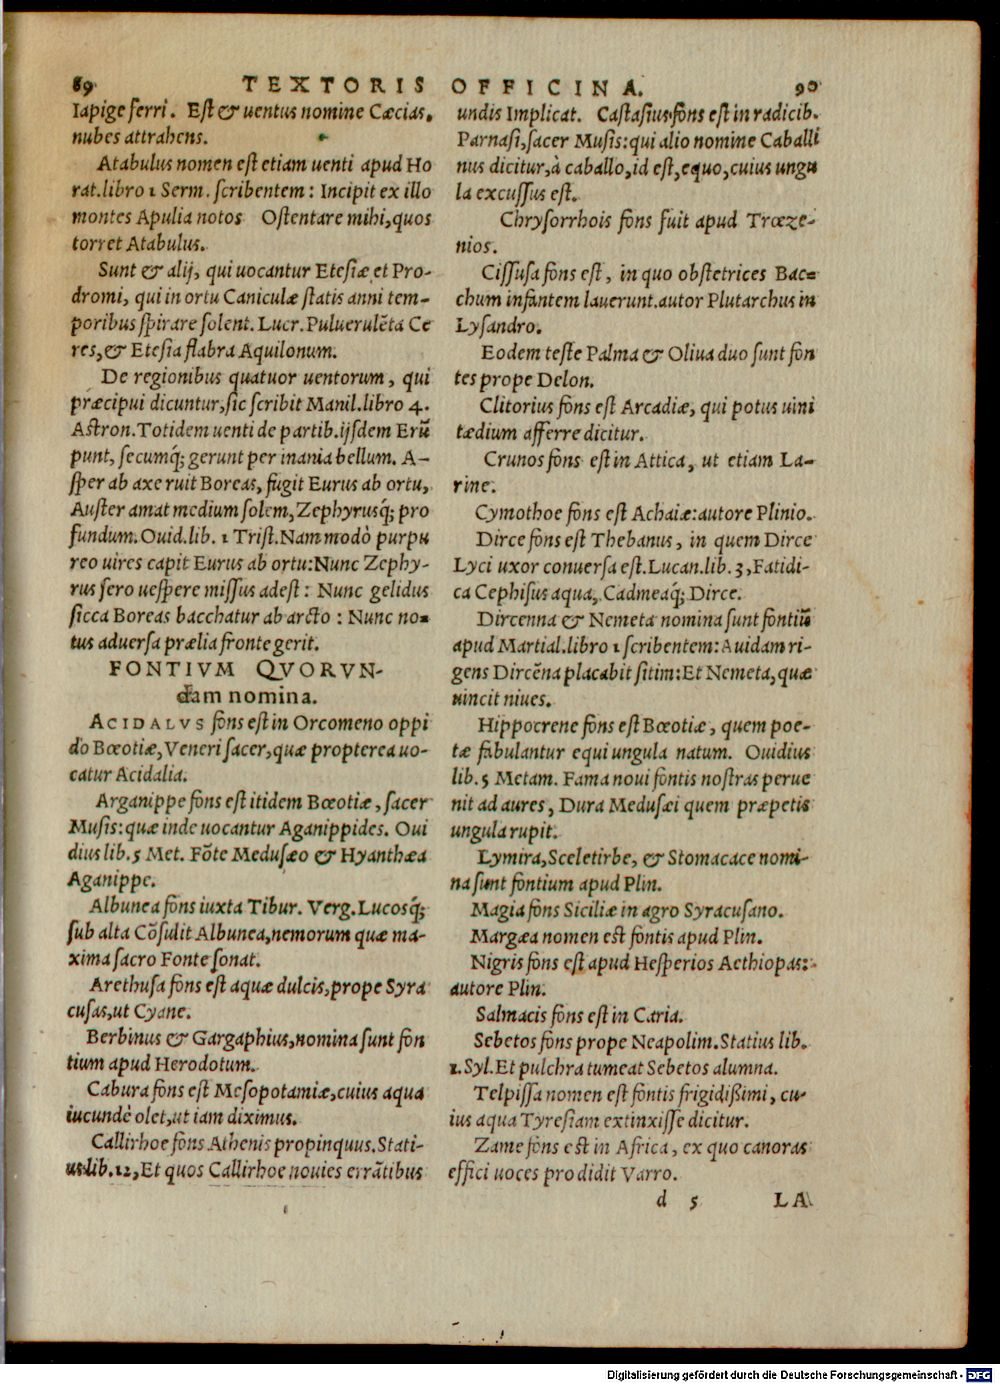 89 TEXTORIS OFFICINA. 90
Iapige ferri. Est & uentus nomine Cæcias,
nubes attrahens.
Atabulus nomen est etiam uenti apud Ho
rat.libro 1 Serm. scribentem: Incipit ex illo
montes Apulia notos Ostentare mihi,quos
torret Atabulus.
Sunt & alij, qui uocantur Etesiæ et Pro-
dromi, qui in ortu Caniculæ statis anni tem-
poribus spirare solent. Lucr. Puluerulẽta Ce
res,& Etesia flabra Aquilonum.
De regionibus quatuor uentorum, qui
præcipui dicuntur,sic scribit Manil.libro 4.
Astron.Totidem uenti de partib.ijsdem Erũ
punt, secumq́; gerunt per inania bellum. A-
sper ab axe ruit Boreas, fugit Eurus ab ortu,
Auster amat medium solem, Zephyrusq́; pro
fundum. Ouid.lib. 1 Trist. Nam modò purpu
reo uires capit Eurus ab ortu:Nunc Zephy-
rus sero uespere missus adest: Nunc gelidus
sicca Boreas bacchatur ab arcto: Nunc no-
tus aduersa prælia fronte gerit.
FONTIVM QVORVN-
dam nomina.
ACIDALVS fons est in Orcomeno oppi
do Bœotiæ, Veneri sacer,quæ propterea uo-
catur Acidalia.
Arganippe fons est itidem Bœotiæ, sacer
Musis: quæ inde uocantur Aganippides. Oui
dius lib.5 Met. Fõte Medusæo & Hyanthæa
Aganippe.
Albunea fons iuxta Tibur. Verg. Lucosq́;
sub alta Cõsulit Albunea,nemorum quæ ma-
xima sacro Fonte sonat.
Arethusa fons est aquæ dulcis,prope Syra
cusas,ut Cyane.
Berbinus & Gargaphius,nomina sunt fon
tium apud Herodotum.
Cabura fons est Mesopotamiæ,cuius aqua
iucundè olet,ut iam diximus.
Callirhoe fons Athenis propinquus.Stati-
us lib.12, Et quos Callirhoe nouies errãtibus
undis Implicat. Castasius fons est in radicib.
Parnasi,sacer Musis: qui alio nomine Caballi
nus dicitur,à caballo,id est,equo,cuius ungu
la excussus est.
Chrysorrhois fons fuit apud Trœze-
nios.
Cissusa fons est, in quo obstetrices Bac-
chum infantem lauerunt.autor Plutarchus in
Lysandro.
Eodem teste Palma & Oliua duo sunt fon
tes prope Delon.
Clitorius fons est Arcadiæ, qui potus uini
tædium afferre dicitur.
Crunos fons est in Attica, ut etiam La-
rine.
Cymothoe fons est Achaiæ: autore Plinio.
Dirce fons est Thebanus, in quem Dirce
Lyci uxor conuersa est.Lucan.lib. 3, Fatidi-
ca Cephisus aqua, Cadmeaq́; Dirce.
Dircenna & Nemeta nomina sunt fontiũ
apud Martial.libro 1 scribentem: Auidam ri-
gens Dircẽna placabit sitim:Et Nemeta,quæ
uincit niues.
Hippocrene fons est Bœotiæ, quem poe-
tæ fabulantur equi ungula natum. Ouidius
lib. 5 Metam. Fama noui fontis nostras perue
nit ad aures, Dura Medusæi quem præpetis
ungula rupit.
Lymira,Sceletirbe, & Stomacace nomi-
na sunt fontium apud Plin.
Magia fons Siciliæ in agro Syracusano.
Margæa nomen est fontis apud Plin.
Nigris fons est apud Hesperios Aethiopas:
autore Plin.
Salmacis fons est in Caria.
Sebetos fons prope Neapolim. Statius lib.
1.Syl.Et pulchra tumeat Sebetos alumna.
Telpissa nomen est fontis frigidißimi, cu-
ius aqua Tyresiam extinxisse dicitur.
Zame fons est in Africa, ex quo canoras
effici uoces prodidit Varro.
d 5 LA
Digitalisierung gefördert durch die Deutsche Forschungsgemeinschaft - DFG